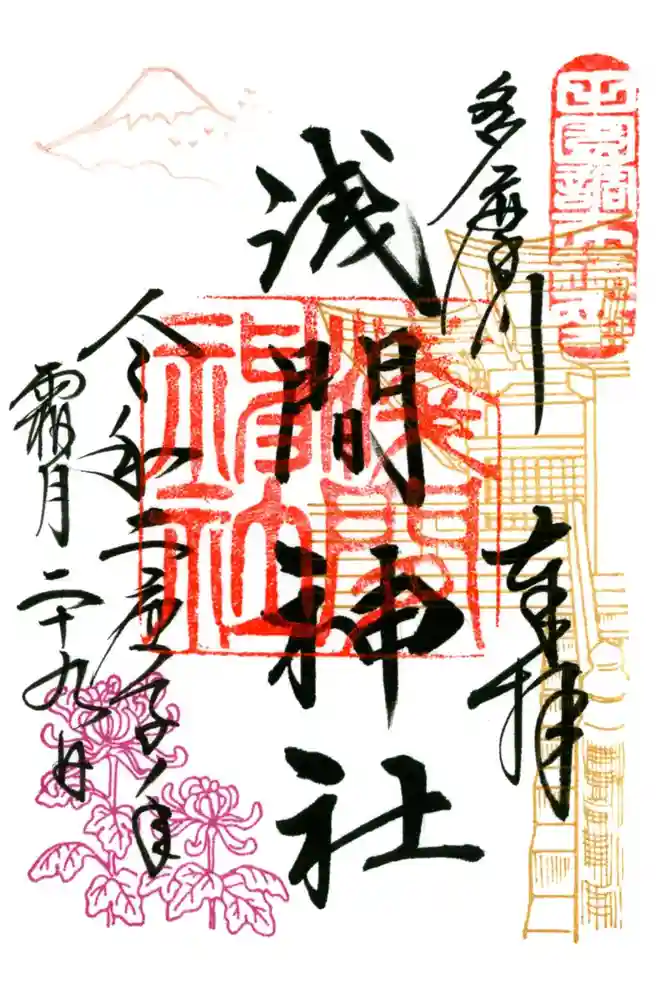 多摩川
奉拝
浅間神社
令和二庚子ノ年
霜月二十九日
田園調布
淺間
神社